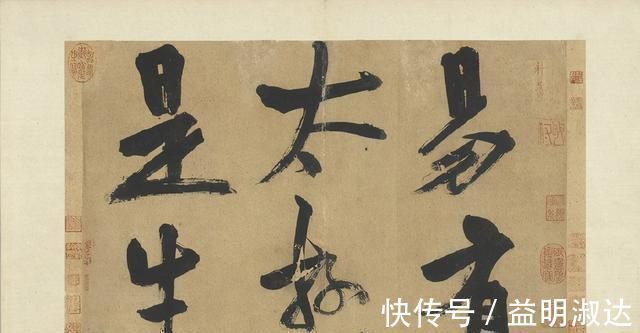 易有
太極
是生
快传号 / 益明淑达